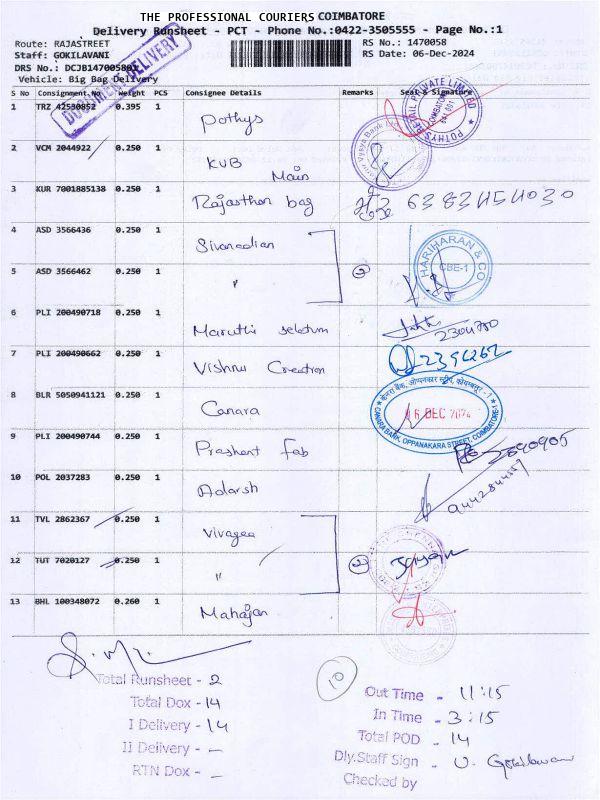 THE PROFESSIONAL COURIERS COIMBATORE
Delivery Runsheet - PCT - Phone No.:0422-3505555 - Page No.:1
Route: RAJASTREET
RS No.: 1470058
Staff: GOKILAVANI
RS Date: 06-Dec-2024
DRS No.: DCJB14700580
Vehicle: Big Bag Delivery
DOCUMENT DELIVERY
S No Consignment No Weight PCS Consignee Details Remarks Seal & Signature
1 TRZ 42530852 0.395 1 Pothys
POTHYS RETAIL PRIVATE LIMITED COIMBATORE 641 001
2 VCM 2044922 0.250 1 KVB Main
3 KUR 7001885138 0.250 1 Rajasthan bag 6383454030
4 ASD 3566436 0.250 1 Sivanadian
HARIHARAN & CO CBE-1
5 ASD 3566462 0.250 1 " 2
6 PLI 200490718 0.250 1 Maruthi selection 2304780
7 PLI 200490662 0.250 1 Vishnu Creation 2394262
8 BLR 5050941121 0.250 1 Canara
केनरा बैंक, ओप्पनकार स्ट्रीट, कोयम्बत्तूर - 1
6 DEC 2024
CANARA BANK, OPPANAKARA STREET, COIMBATORE-1
9 PLI 200490744 0.250 1 Prashant Fab
10 POL 2037283 0.250 1 Adarsh 9442844557
11 TVL 2862367 0.250 1 Vivagaa
12 TUT 7020127 0.250 1 " 2
13 BHL 100348072 0.260 1 Mahajan
Total Runsheet - 2
Total Dox - 14
I Delivery - 14
II Delivery - –
RTN Dox - –
10
Out Time - 11:15
In Time - 3:15
Total POD - 14
Dly.Staff Sign - U. Gokilavani
Checked by